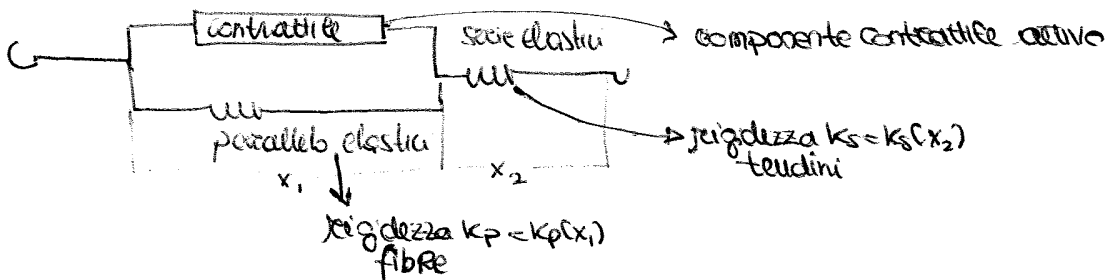 contrattile
serie elastici
componente contrattile attivo
parallelo elastici
rigidezza Ks = Ks(x2)
tendini
x1
x2
rigidezza Kp = Kp(x1)
fibre